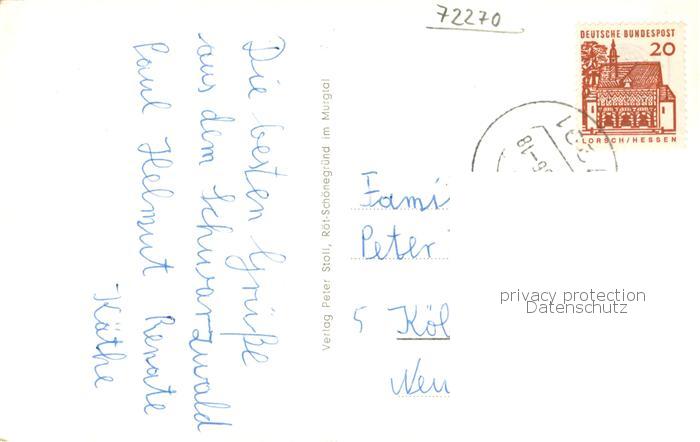 72270
DEUTSCHE BUNDESPOST
20
LORSCH/HESSEN
-18
Die besten Grüße
aus dem Schwarzwald
Paul Helmut Renate
Käthe
Verlag Peter Stoll, Röt-Schönegründ im Murgtal
Fami
Peter
5 Köl
Neu
privacy protection
Datenschutz